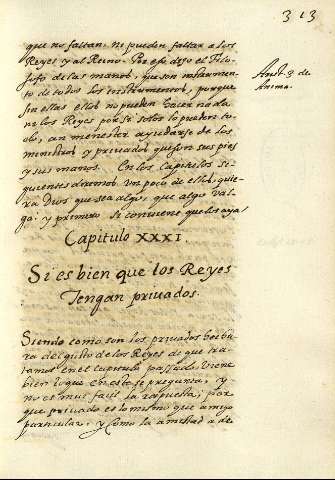 313
que no faltan, ni pueden faltar a los
Reyes y al Reino. Por eso dixo el Filo-
sofo de las manos, que son instrumen-
to de todos los instrumentos, porque
sin ellas ellos no pueden hacer nada
ni los Reyes por si solos lo pueden to-
do, an menester ayudarse de los
ministros y privados que son sus pies
y sus manos. En los Capitulos si-
guientes diremos un poco de ellos, quie-
ra Dios que sea algo, que algo val-
ga: y primero si conviene que los aya
Arist. 3 de
Anima.
Capitulo XXXI.
Si es bien que los Reyes
Tengan privados.
Siendo como son los privados
del gusto de los Reyes de que tra-
tamos en el capitulo passado viene
bien lo que en este se pregunta, y
no es muy facil la respuesta; por
que privado es lo mismo que amigo
particular, y como la amistad a de